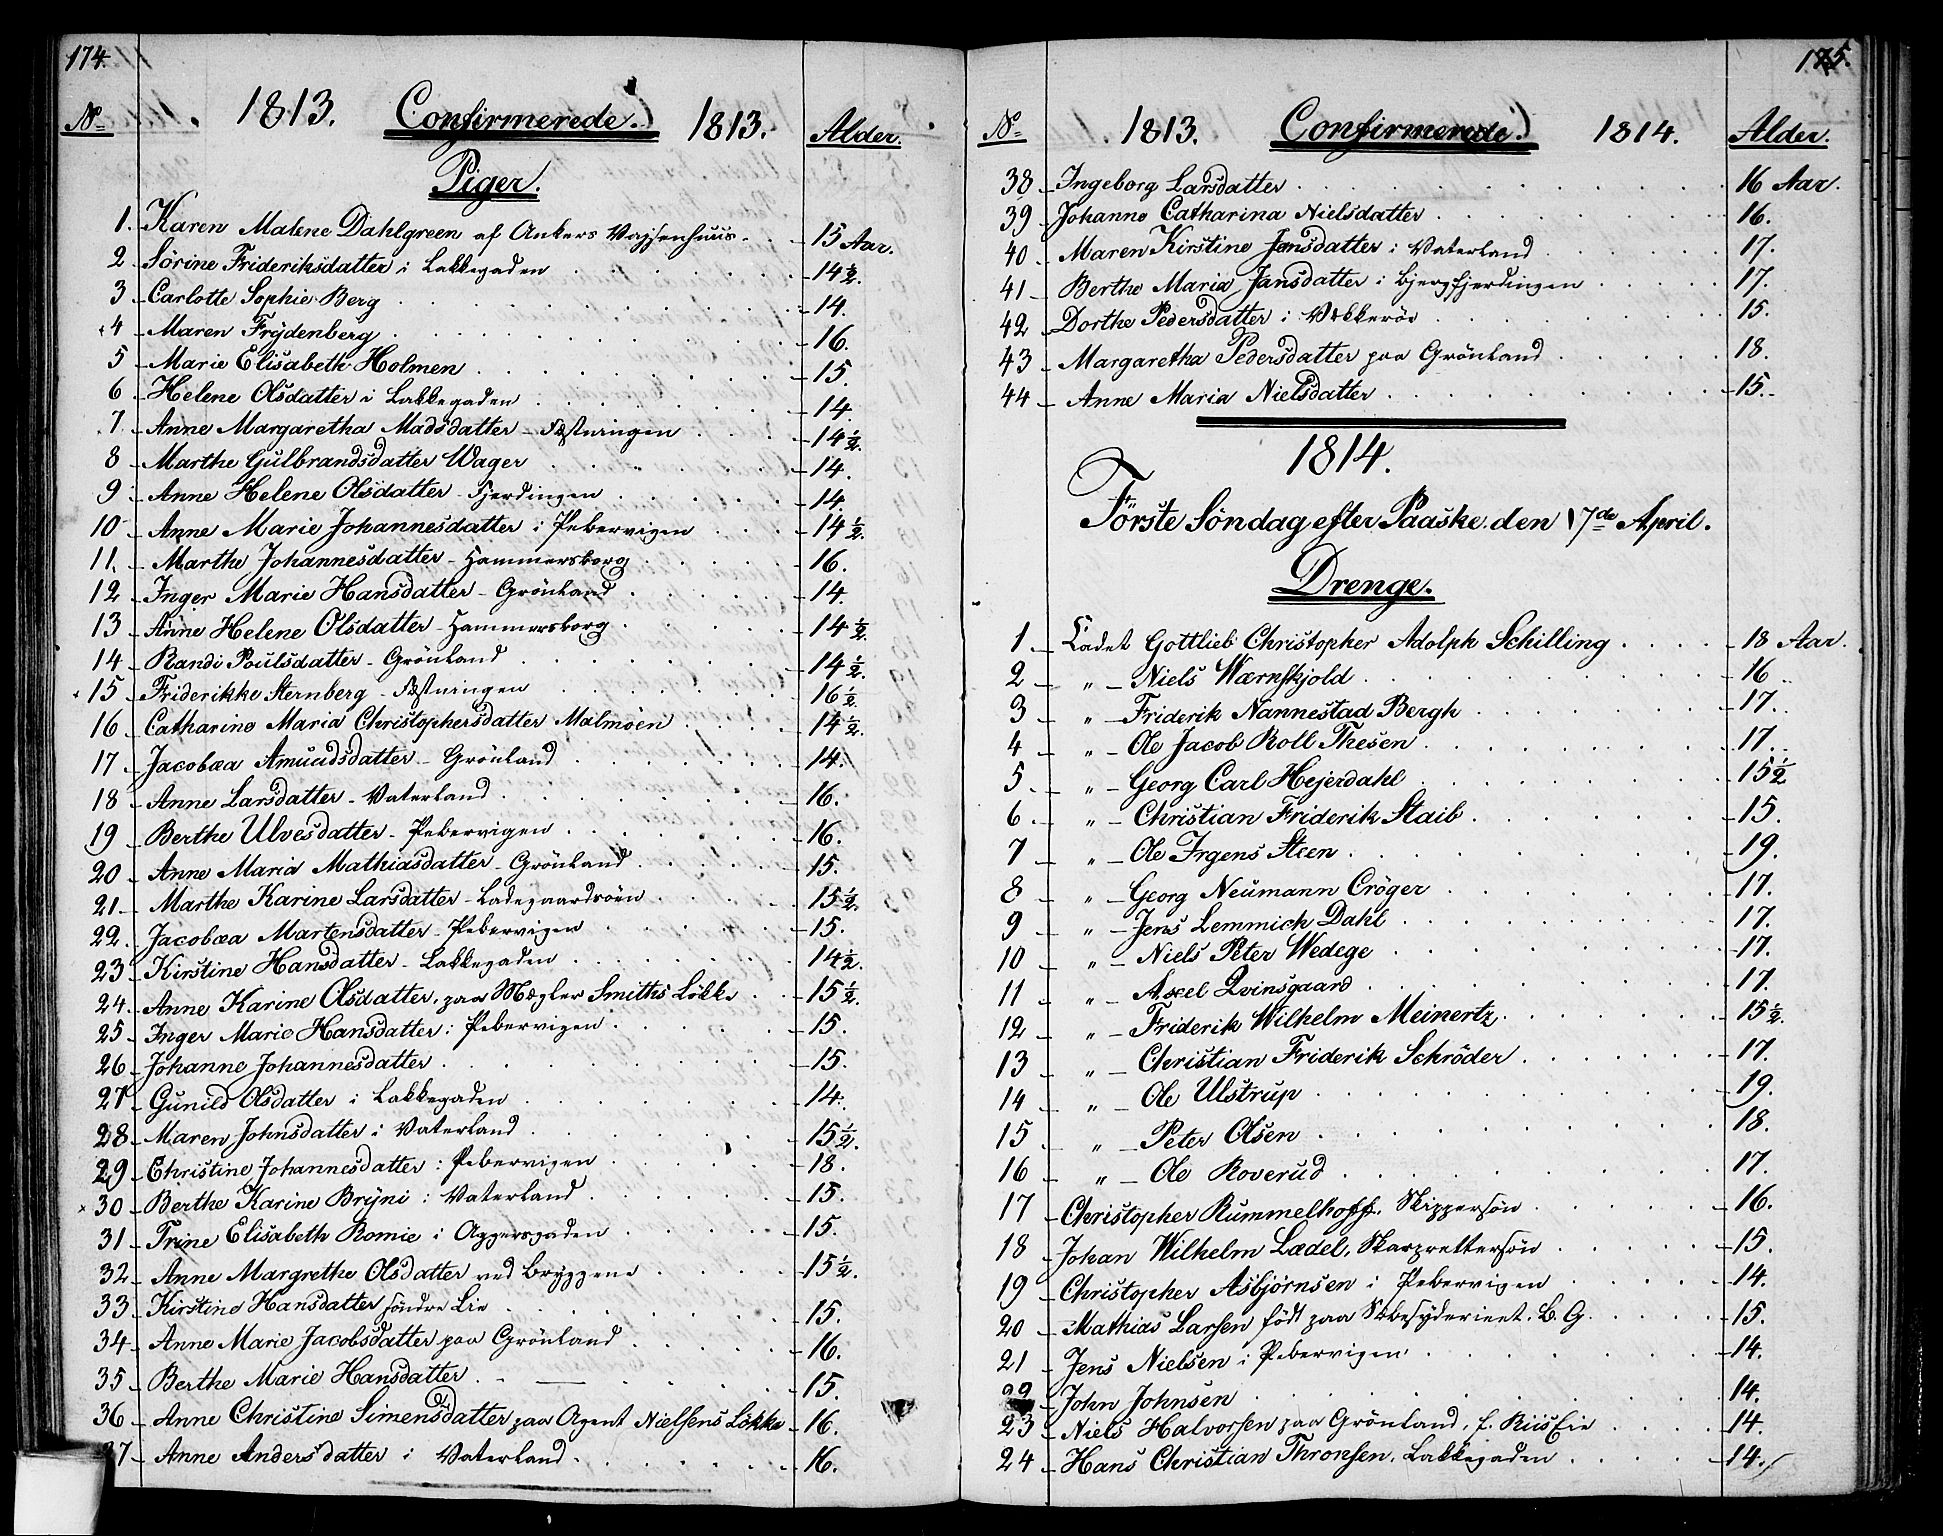 174.
No 1813. Confirmerede. 1813. Alder.
Piger.
1. Karen Malene Dahlgreen af Ankers Vajsenhuus 15 Aar.
2 Sörine Frideriksdatter i Lakkegaden 14 1/2.
3 Carlotte Sophie Berg 14.
4 Maren Frÿdenberg 16.
5 Marie Elisabeth Holmen 15.
6 Helene Olsdatter i Lakkegaden 14
7 Anne Margaretha Madsdatter - Fæstningen 14 1/2.
8 Marthe Gulbrandsdatter Wager 14.
9 Anne Helene Olsdatter - Fjerdingen 14.
10 Anne Marie Johannesdatter i Pebervigen 14 1/2.
11. Marthe Johannesdatter - Hammersborg 16.
12 Inger Marie Hansdatter - Grönland 14.
13 Anne Helene Olsdatter - Hammersborg 14 1/2.
14 Randi Poulsdatter - Grönland 14 1/2.
15 Friderikke Sternberg - Fæstningen 16 1/2.
16 Catharine Maria Christophersdatter Malmöen 14 1/2.
17 Jacobæa Amundsdatter - Grönland 14.
18 Anne Larsdatter - Vaterland 16.
19 Berthe Ulvesdatter - Pebervigen 16.
20 Anne Maria Mathiasdatter - Grönland 15.
21 Marthe Karine Larsdatter - Ladegaardsöen 15 1/2.
22. Jacobæa Martensdatter - Pebervigen 15.
23 Kirstine Hansdatter - Lakkegaden 14 1/2.
24. Anne Karine Olsdatter, paa Mægler Smiths Lökke 15 1/2.
25 Inger Marie Hansdatter i Pebervigen 15.
26 Johanne Johannesdatter 15.
27 Gunild Olsdatter i Lakkegaden 14.
28 Maren Johnsdatter i Vaterland 15 1/2.
29 Christine Johannesdatter i Pebervigen 18.
30 Berthe Karine Brÿni i Vaterland 15.
31 Trine Elisabeth Romie i Aggersgaden 15.
32 Anne Margrethe Olsdatter ved Bryggene 15 1/2.
33 Kirstine Hansdatter söndre Lie 15.
34 Anne Marie Jacobsdatter paa Grönland 16.
35 Berthe Marie Hansdatter 15.
36 Anne Christine Simensdatter paa Agent Nielsens Lökke 16.
37 Anne Andersdatter i Vaterland 16.
175.
No 1813. Confirmerede. 1814. Alder.
38 Ingeborg Larsdatter 16 Aar.
39 Johanne Catharina Nielsdatter 16.
40 Maren Kirstine Jensdatter i Vaterland 17.
41 Berthe Maria Jansdatter i Bjergfjerdingen 17.
42 Dorthe Pedersdatter i Vækkeröe 15.
43 Margaretha Pedersdatter paa Grönland 18.
44 Anne Maria Nielsdatter 15.
1814.
Förste Söndag efter Paaske den 17de April.
Drenge.
1 Cadet Gottlieb Christopher Adolph Schilling 18 Aar.
2 " Niels Wærnskjold 16
3 " Friderik Nannestad Bergh 17.
4 " Ole Jacob Roll Thesen 17.
5. " Georg Carl Hejerdahl 15 1/2
6. " Christian Friderik Staib 15.
7 " Ole Irgens Steen 19.
8 " Georg Neumann Cröger 17.
9 " Jens Lemmich Dahl 17.
10 " Niels Peter Wedege 17.
11 " Axel Qvinsgaard 17.
12 " Friderik Wilhelm Meinertz 15 1/2.
13 " Christian Friderik Schröder 17.
14 " Ole Ulstrup 19.
15 " Peter Olsen 18.
16 " Ole Roverud 17.
17 Christopher Rummelhoff. Skippersön 16.
18 Johan Wilhelm Lædel, Skarprettersön 15.
19 Christopher Asbjörnsen i Pebervigen 14.
20 Mathias Larsen födt paa B. G. 15.
21 Jens Nielsen i Pebervigen 14.
22 John Johnsen 14.
23 Niels Halvorsen paa Grönland, f. Riis Eie 14.
24 Hans Christian Thronsen, Lakkegaden 14.